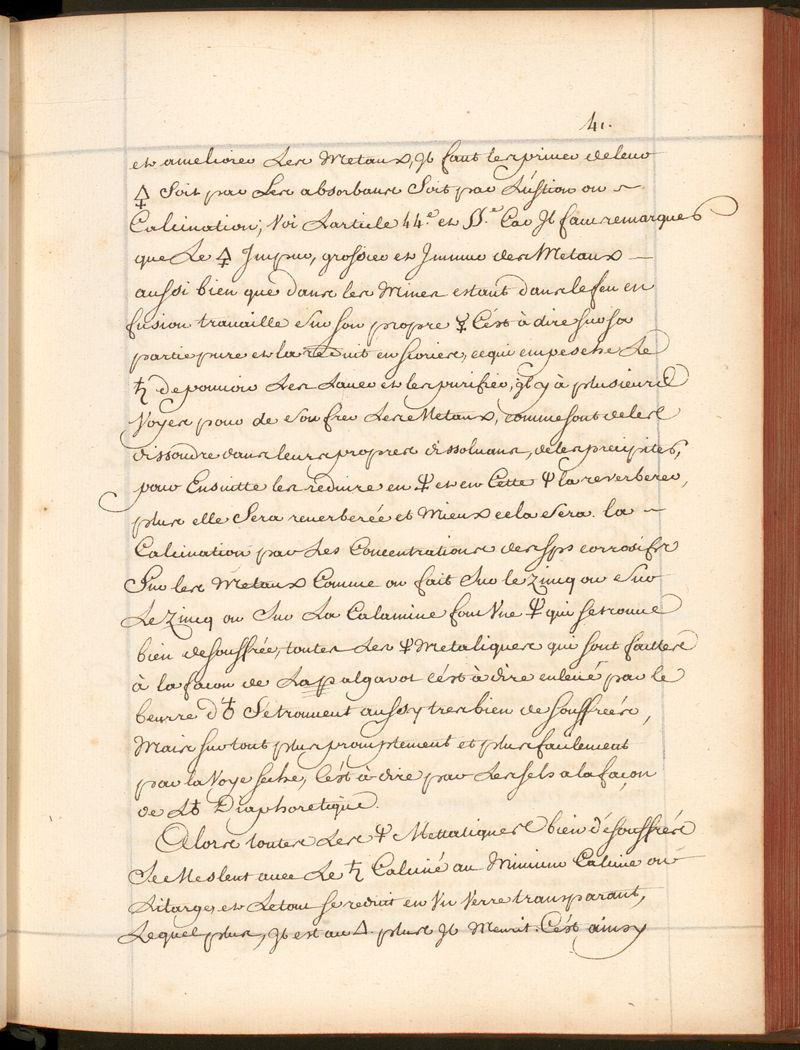 41.
et ameliorer Les Metaux, Il faut les priver de leur
🜍 Soit par Les absorbans Soit par L'ustion ou ~
Calcination; Voi L'article 44.e et 55.e Car Il faut remarquer
que Le 🜍 Impur, grossier et Immur des Metaux —
aussi bien que dans les Mines estant dans le feu en
fusion travaille Sur son propre ☿ C'est à dire sur sa
partie pure et la reduit en scories, ce qui empesche Le
♄ de pouvoir Les Laver et les purifier, Il y à plusieurs
Voyes pour de Soufrer Les Metaux, comme sont de les
dissoudre dans leurs propres dissolvans, de les precipiter,
pour Ensuitte les reduire en 🜍 et en Cette Ψ la reverberer,
plus elle Sera reverberée et Mieux cela Sera. la ~
Calcination par Les Concentrations des sps corrosifs
Sur les Metaux Comme on fait Sur le zincq ou Sur
Le zincq ou Sur La Calamine font Vne Ψ qui se trouve
bien desouffrée, toutes Les Ψ Metaliques qui sont faittes
à la façon de La p algarot c'est à dire enlevé par le
beurre d'♁ Se trouvent aussy tres bien de souffreés,
Mais sur tout plus promptement et plus facilement
par la Voye seche, C'est à dire par Les sels a la façon
de L'♁ Diaphoretique.
Alors toutes Les Ψ Mettatiques bien désouffrés
Se Meslent avec Le ♄ Calciné au Minium Calciné ou
Litarge, et Le tout se reduit en Vn Verre transparant,
Lequel plus, Il est au △. plus Il Meurit. C'est ainsy